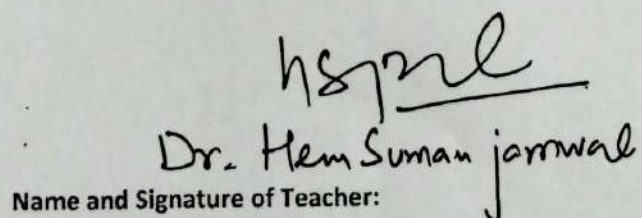 Dr. Hem Suman jamwal
Name and Signature of Teacher: